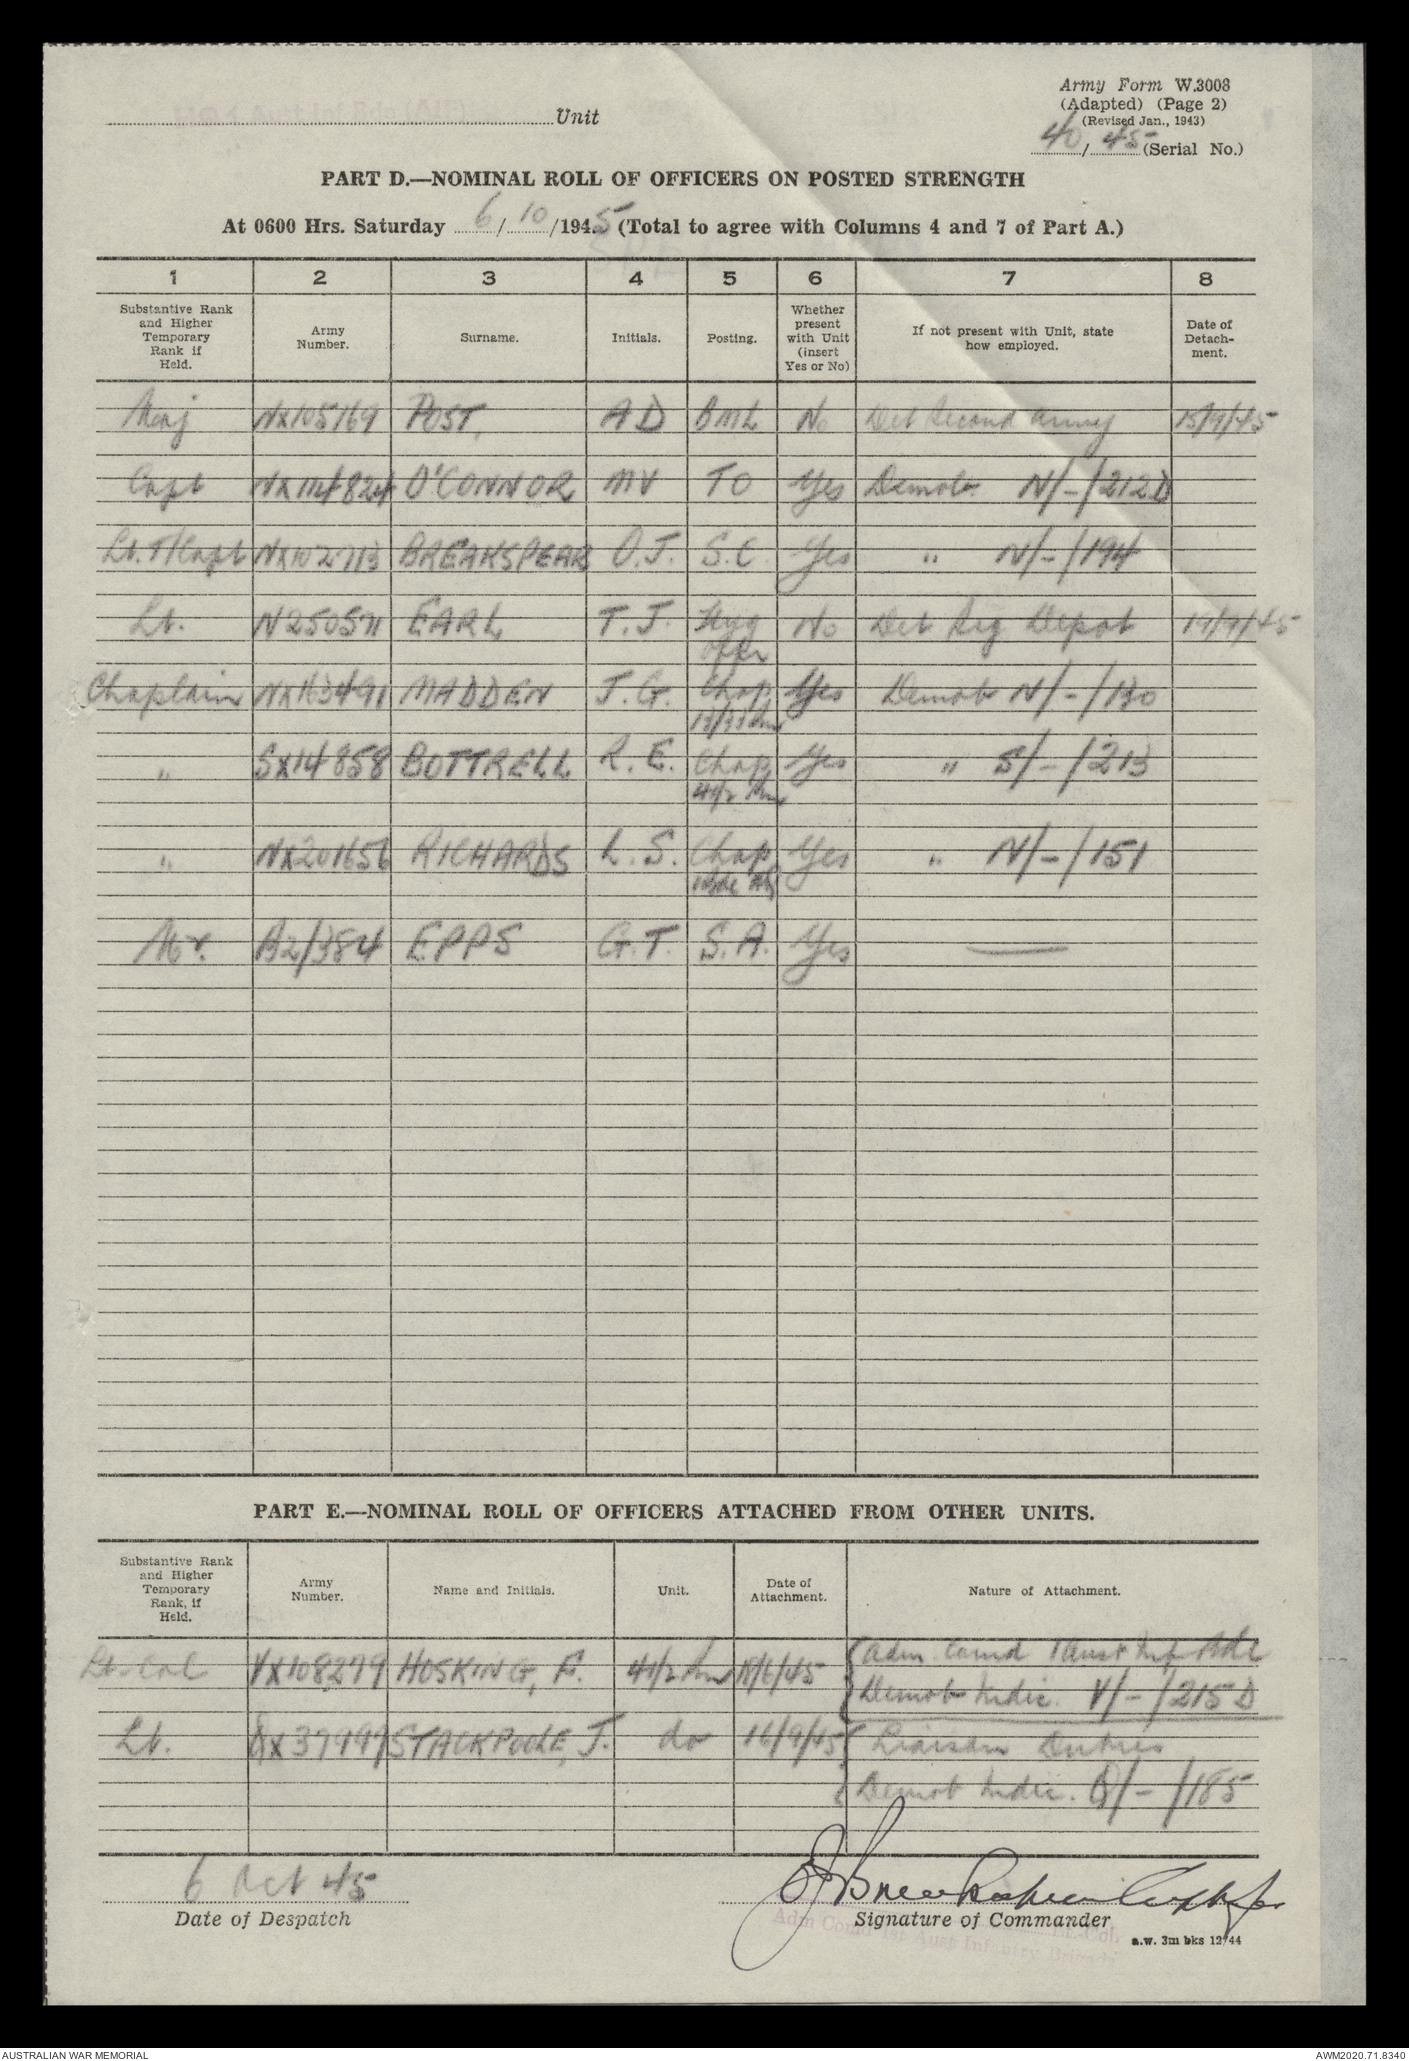 HQ 1 Aust Inf Bde (AIF) Unit
Army Form W.3008
(Adapted) (Page 2)
(Revised Jan., 1943)
40/45 (Serial No.)
PART D.—NOMINAL ROLL OF OFFICERS ON POSTED STRENGTH
At 0600 Hrs. Saturday 6/10/1945 (Total to agree with Columns 4 and 7 of Part A.)
1 2 3 4 5 6 7 8
Substantive Rank and Higher Temporary Rank if Held. Army Number. Surname. Initials. Posting. Whether present with Unit (insert Yes or No) If not present with Unit, state how employed. Date of Detachment.
Maj NX105169 POST, A D No Det Second Army 15/9/45
Capt O'CONNOR MV TO Yes Demob. N/-/212D
Lt. T/Capt NX102713 BREAKSPEAR O.J. S.C. Yes " N/-/194
Lt. N250571 EARL T.J. No Det Sig Depot 19/9/45
Chaplain NX163491 MADDEN J.G. Chap Yes Demob N/-/130
" SX14858 BOTTRELL R.E. Chap Yes " S/-/213
41/2
" NX201656 RICHARDS L.S. Chap Yes " N/-/151
Mr. B2/384 EPPS G.T. S.A. Yes —
PART E.—NOMINAL ROLL OF OFFICERS ATTACHED FROM OTHER UNITS.
Substantive Rank and Higher Temporary Rank, if Held. Army Number. Name and Initials. Unit. Date of Attachment. Nature of Attachment.
Lt-Col VX108279 HOSKING, F. 41/2 /6/45 Adm Comd 1 Aust Inf Bde
Demob Indic. V/-/215D
Lt. QX37997 STACKPOOLE, J. do 16/9/45 Liaison Duties
Demob Indic. Q/-/185
6 Oct 45
Date of Despatch
OJ Breakspear Capt for
Lt-Col.
Signature of Commander
Adm Comd 1st Aust Infantry Brigade
a.w. 3m bks 12/44
AUSTRALIAN WAR MEMORIAL
AWM2020.71.8340